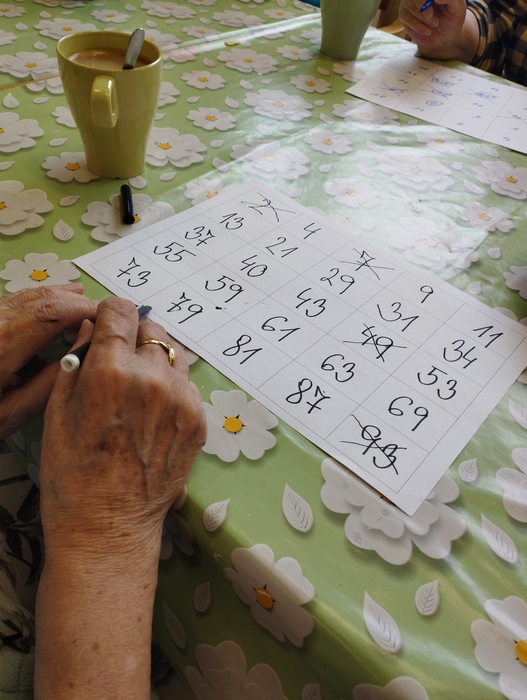 2 4 7 9 11
13 21 29 31 34
37 40 43 49 53
55 59 61 63 69
73 79 81 87 93